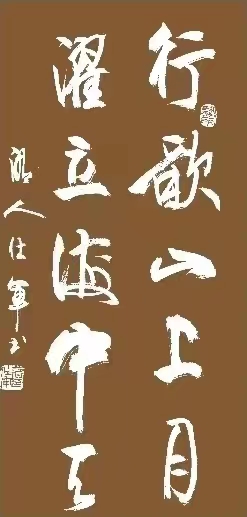 行歌山上月
濯立海中天
人仕軍书